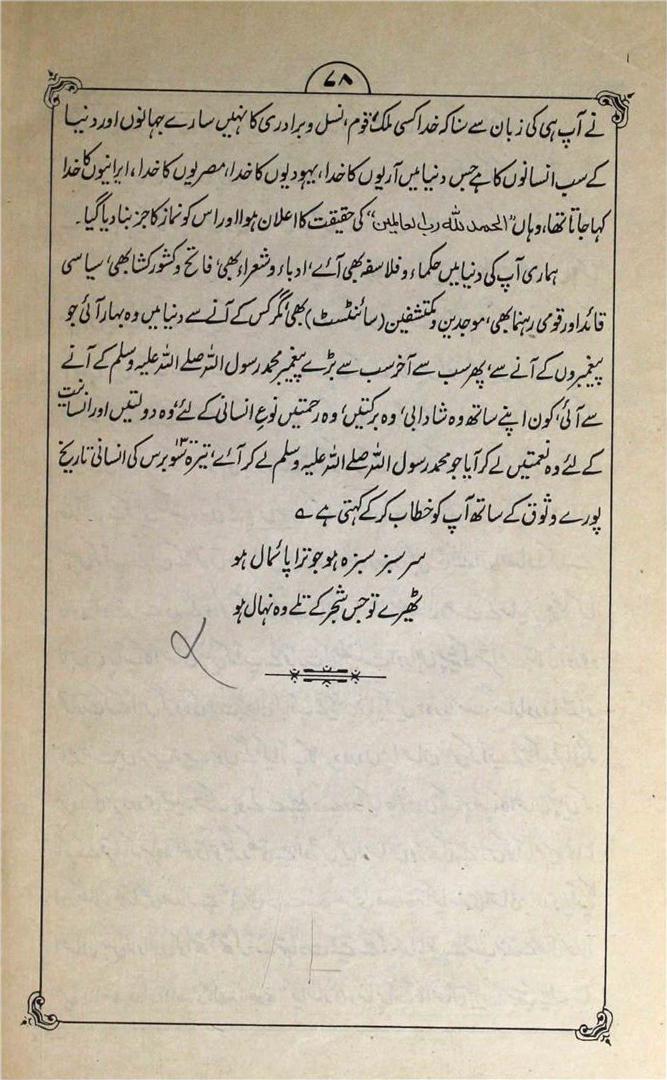 ۷۸
نے آپ ہی کی زبان سے سنا کہ خدا کسی ملک، قوم، نسل و برادری کا نہیں سارے جہانوں اور دنیا
کے سب انسانوں کا ہے جس دنیا میں آریوں کا خدا، یہودیوں کا خدا، مصریوں کا خدا، ایرانیوں کا خدا
کہا جاتا تھا، وہاں "الحمد للہ رب العالمین" کی حقیقت کا اعلان ہوا اور اس کو نماز کا جز بنا دیا گیا۔
ہماری آپ کی دنیا میں حکماء و فلاسفہ بھی آئے، ادباء و شعراء بھی، فاتح و کشور کشا بھی، سیاسی
قائد اور قومی رہنما بھی، موجدین و مکتشفین (سائنٹسٹ) بھی، مگر کس کے آنے سے دنیا میں وہ بہار آئی جو
پیغمبروں کے آنے سے، پھر سب سے آخر سب سے بڑے پیغمبر محمد رسول اللہ صلے اللہ علیہ وسلم کے آنے
سے آئی، کون اپنے ساتھ وہ شادابی، وہ برکتیں، وہ رحمتیں نوع انسانی کے لئے، وہ دولتیں اور انسانیت
کے لئے وہ نعمتیں لے کر آیا جو محمد رسول اللہ صلے اللہ علیہ وسلم لے کر آئے، تیرہ سو برس کی انسانی تاریخ
پورے وثوق کے ساتھ آپ کو خطاب کر کے کہتی ہے ؎
سرسبز سبزہ ہو جو ترا پائمال ہو
ٹھیرے تو جس شجر کے تلے وہ نہال ہو